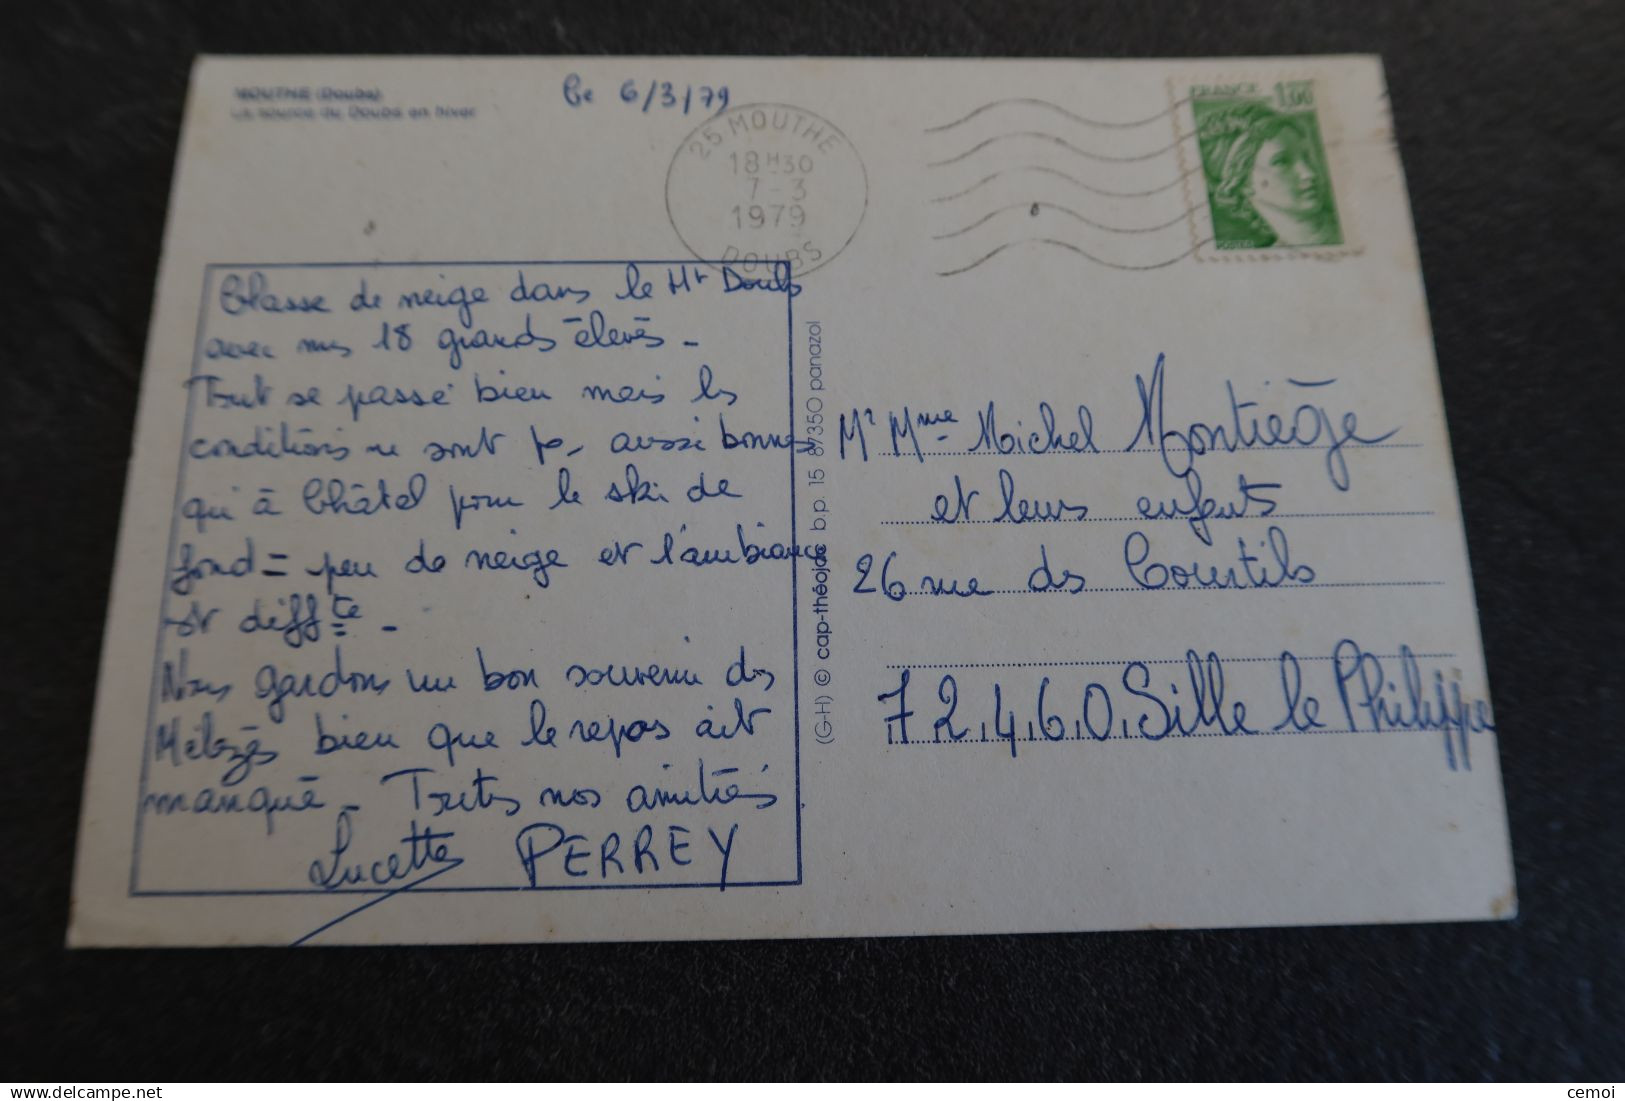 MOUTHE (Doubs)
La source du Doubs en hiver
Le 6/3/79
25 MOUTHE
18H30
7-3
1979
DOUBS
FRANCE 1,00
POSTES
Classe de neige dans le Ht Doubs
avec mes 18 grands élèves -
Tout se passe bien mais les
conditions ne sont pas aussi bonnes
qu'à Châtel pour le ski de
fond = peu de neige et l'ambiance
est difffte -
Nous gardons un bon souvenir des
Mélèzes bien que le repos ait
manqué - Toutes nos amitiés
Lucette PERREY
(G-H) © cap-théojac b.p. 15 87350 panazol
Mr Mme Michel Montiège
et leurs enfants
26 rue des Courtils
72.460. Sille le Philippe
cemoi